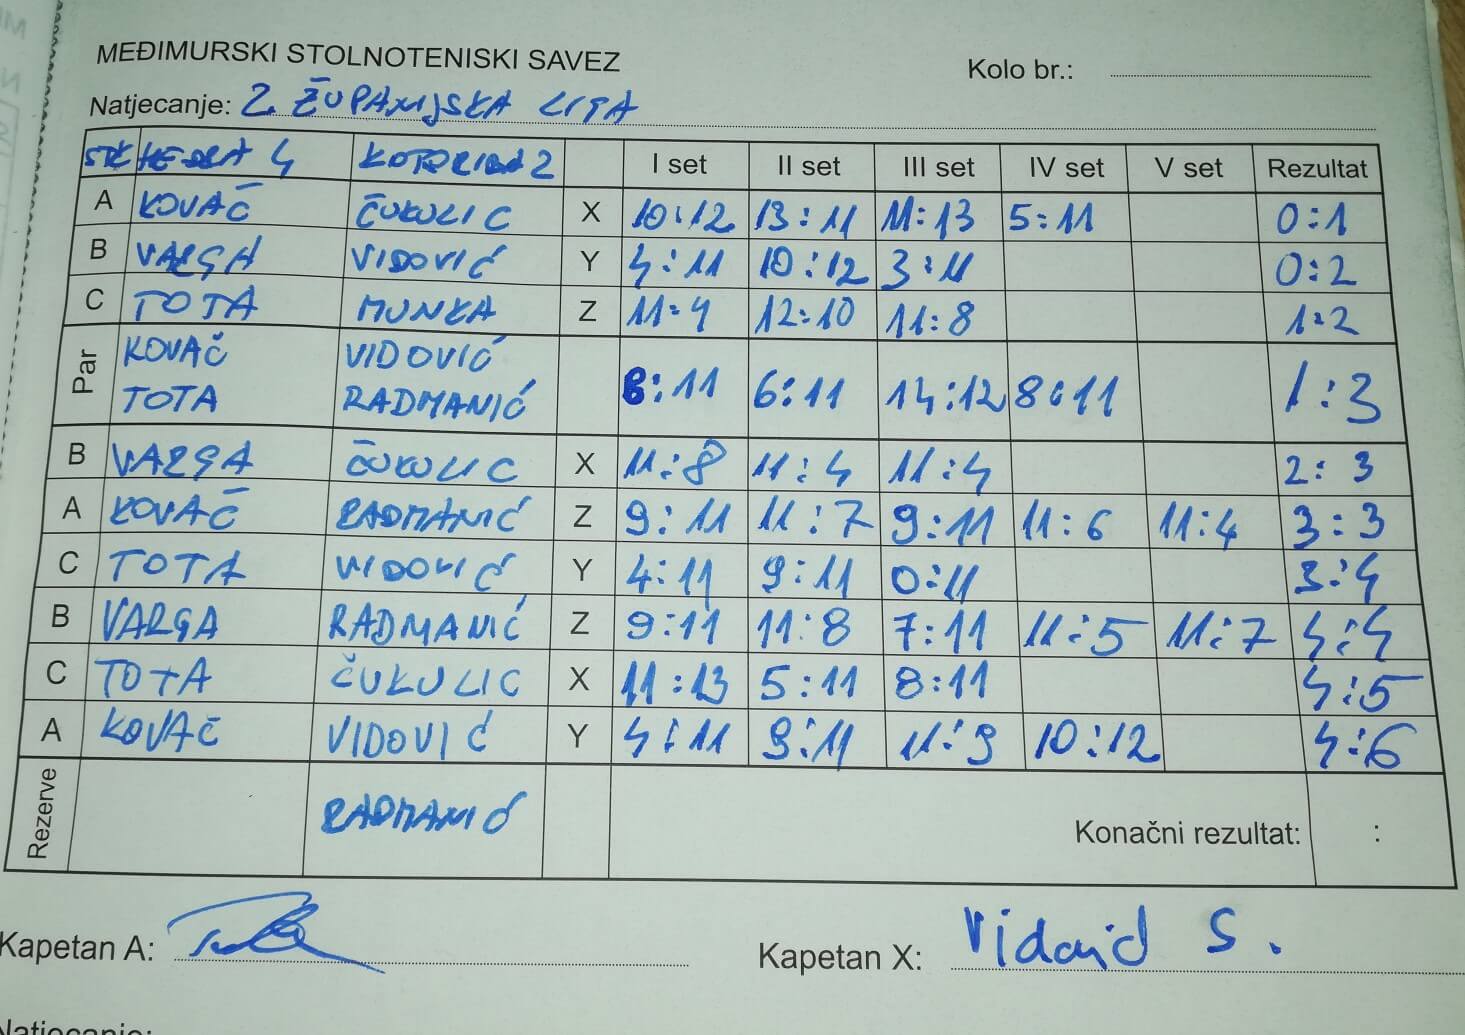 MEĐIMURSKI STOLNOTENISKI SAVEZ
Kolo br.:
Natjecanje: 2. ŽUPANIJSKA LIGA
4 KOTORIBA 2 I set II set III set IV set V set Rezultat
A KOVAČ ČUKULIC X 10:12 13:11 11:13 5:11 0:1
B VARGA VIDOVIĆ Y 4:11 10:12 3:11 0:2
C TOTA MUNKA Z 11:4 12:10 11:8 1:2
Par KOVAČ VIDOVIĆ
TOTA RADMANIĆ 8:11 6:11 14:12 8:11 1:3
B VARGA ČUKULIC X 11:8 11:4 11:4 2:3
A KOVAČ RADMANIĆ Z 9:11 11:7 9:11 11:6 11:4 3:3
C TOTA VIDOVIĆ Y 4:11 9:11 0:11 3:4
B VARGA RADMANIĆ Z 9:11 11:8 7:11 11:5 11:7 4:4
C TOTA ČUKULIC X 11:13 5:11 8:11 4:5
A KOVAČ VIDOVIĆ Y 4:11 9:11 11:9 10:12 4:6
Rezerve RADMANIĆ Konačni rezultat: :
Kapetan A:
Kapetan X: Vidović S.
Natjecanje: